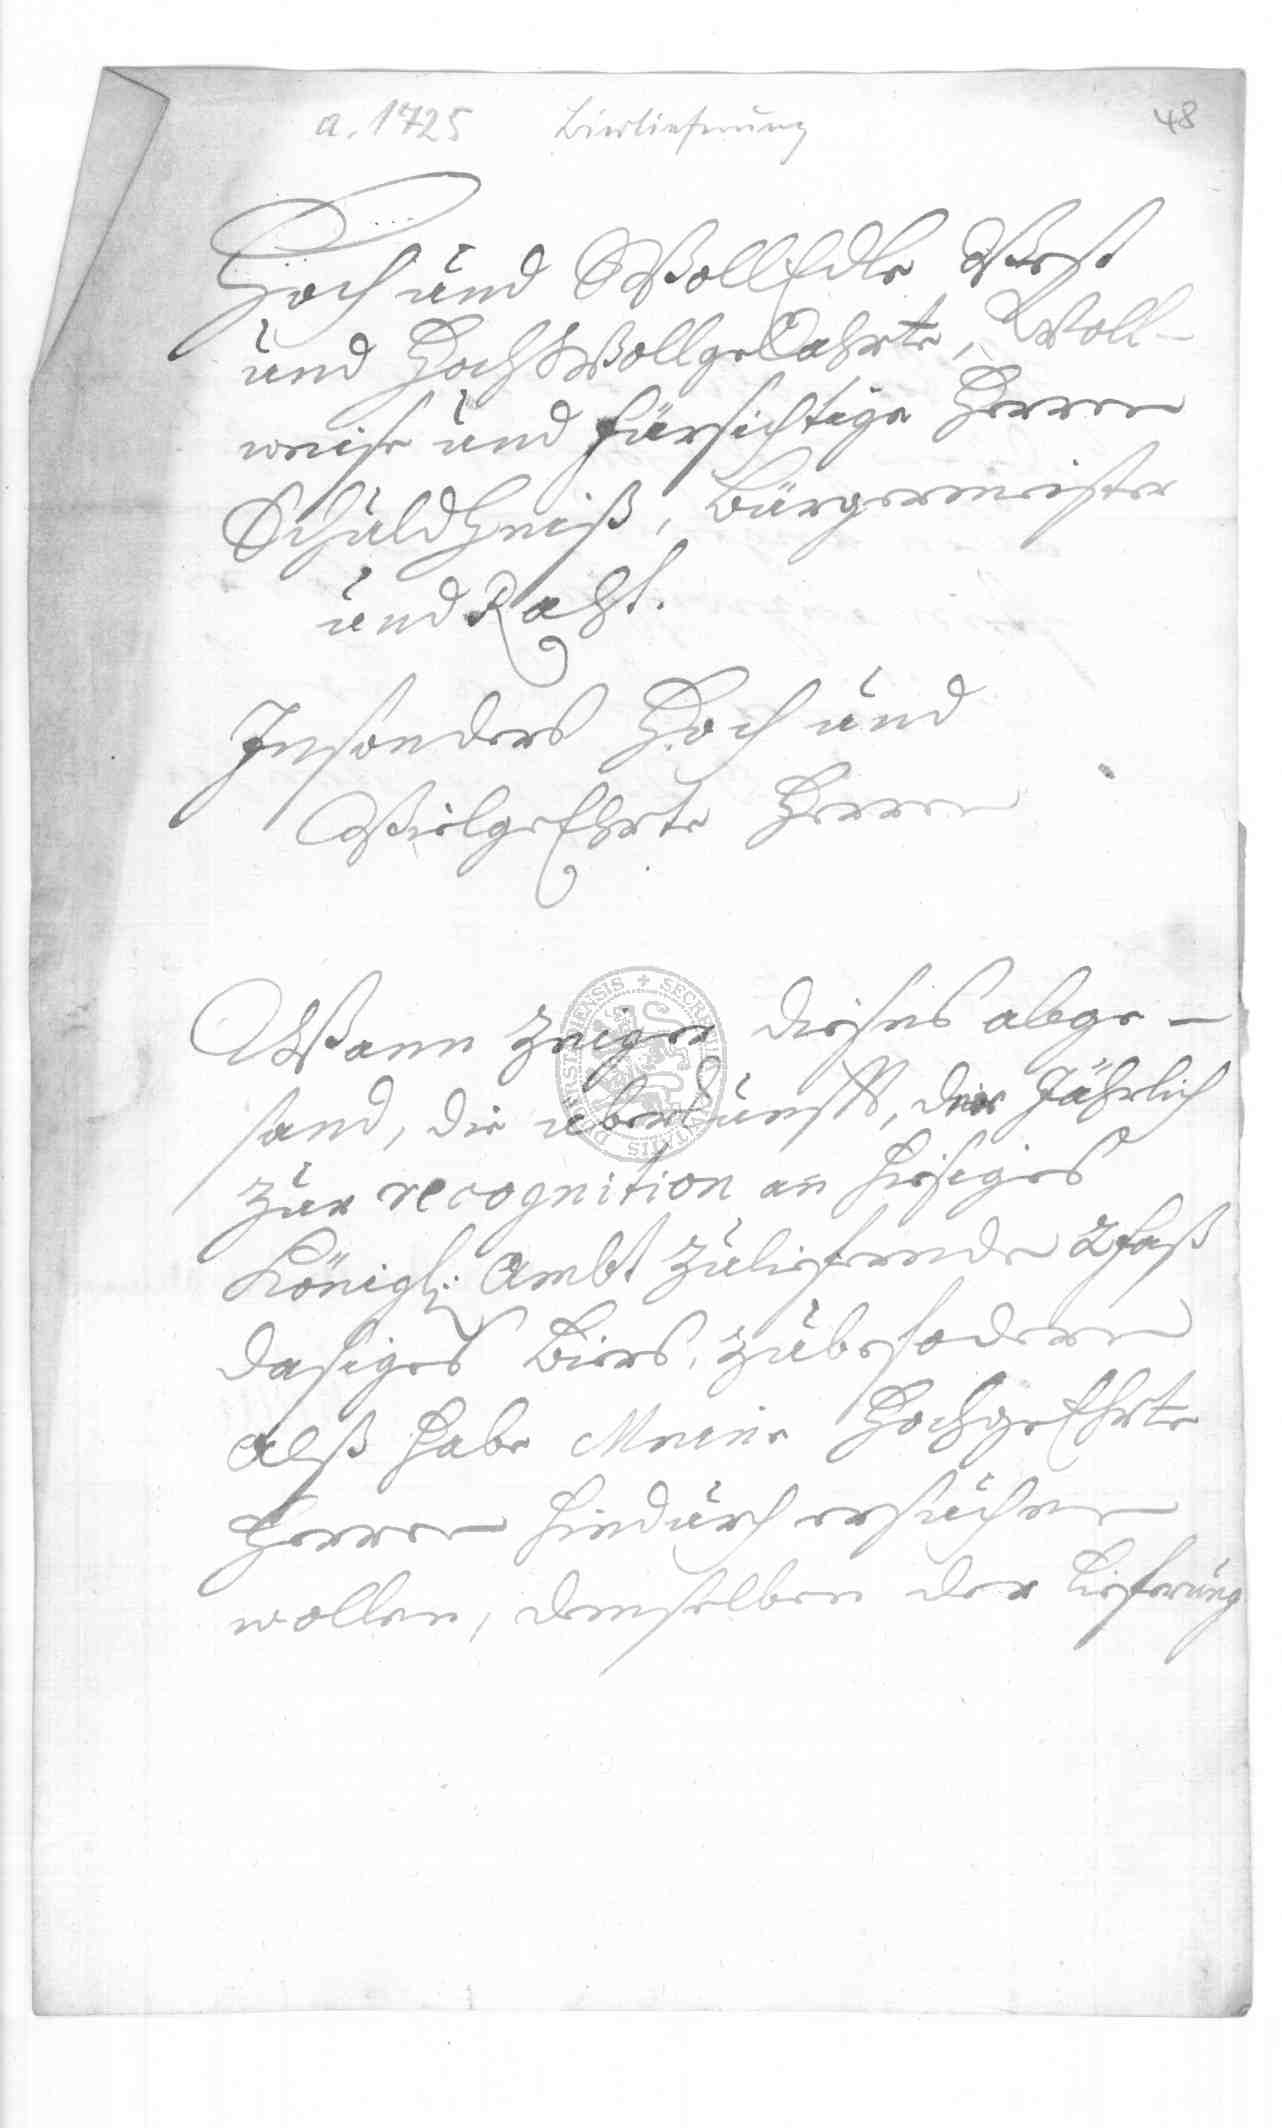 a. 1725 Bierlieferung 48
Hoch und WollEdle Vest
und HochWollgelahrte, Woll-
weise und fürsichtige Herren
Schuldheiß, Bürgermeister
und Raht.
Insonders Hoch und
VielgeEhrte Herren
Wann zeiger dieses abge-
sand, die überkunfft, der Jährlich
zur recognition an hiesiges
Königl: Ambt zulieferende 2 faß
dasiges Biers, zubefodern
alß habe Meine HochgeEhrte
Herren hiedurch ersuchen
wollen, demselben der Lieferung
SECRETUM CIVITATIS